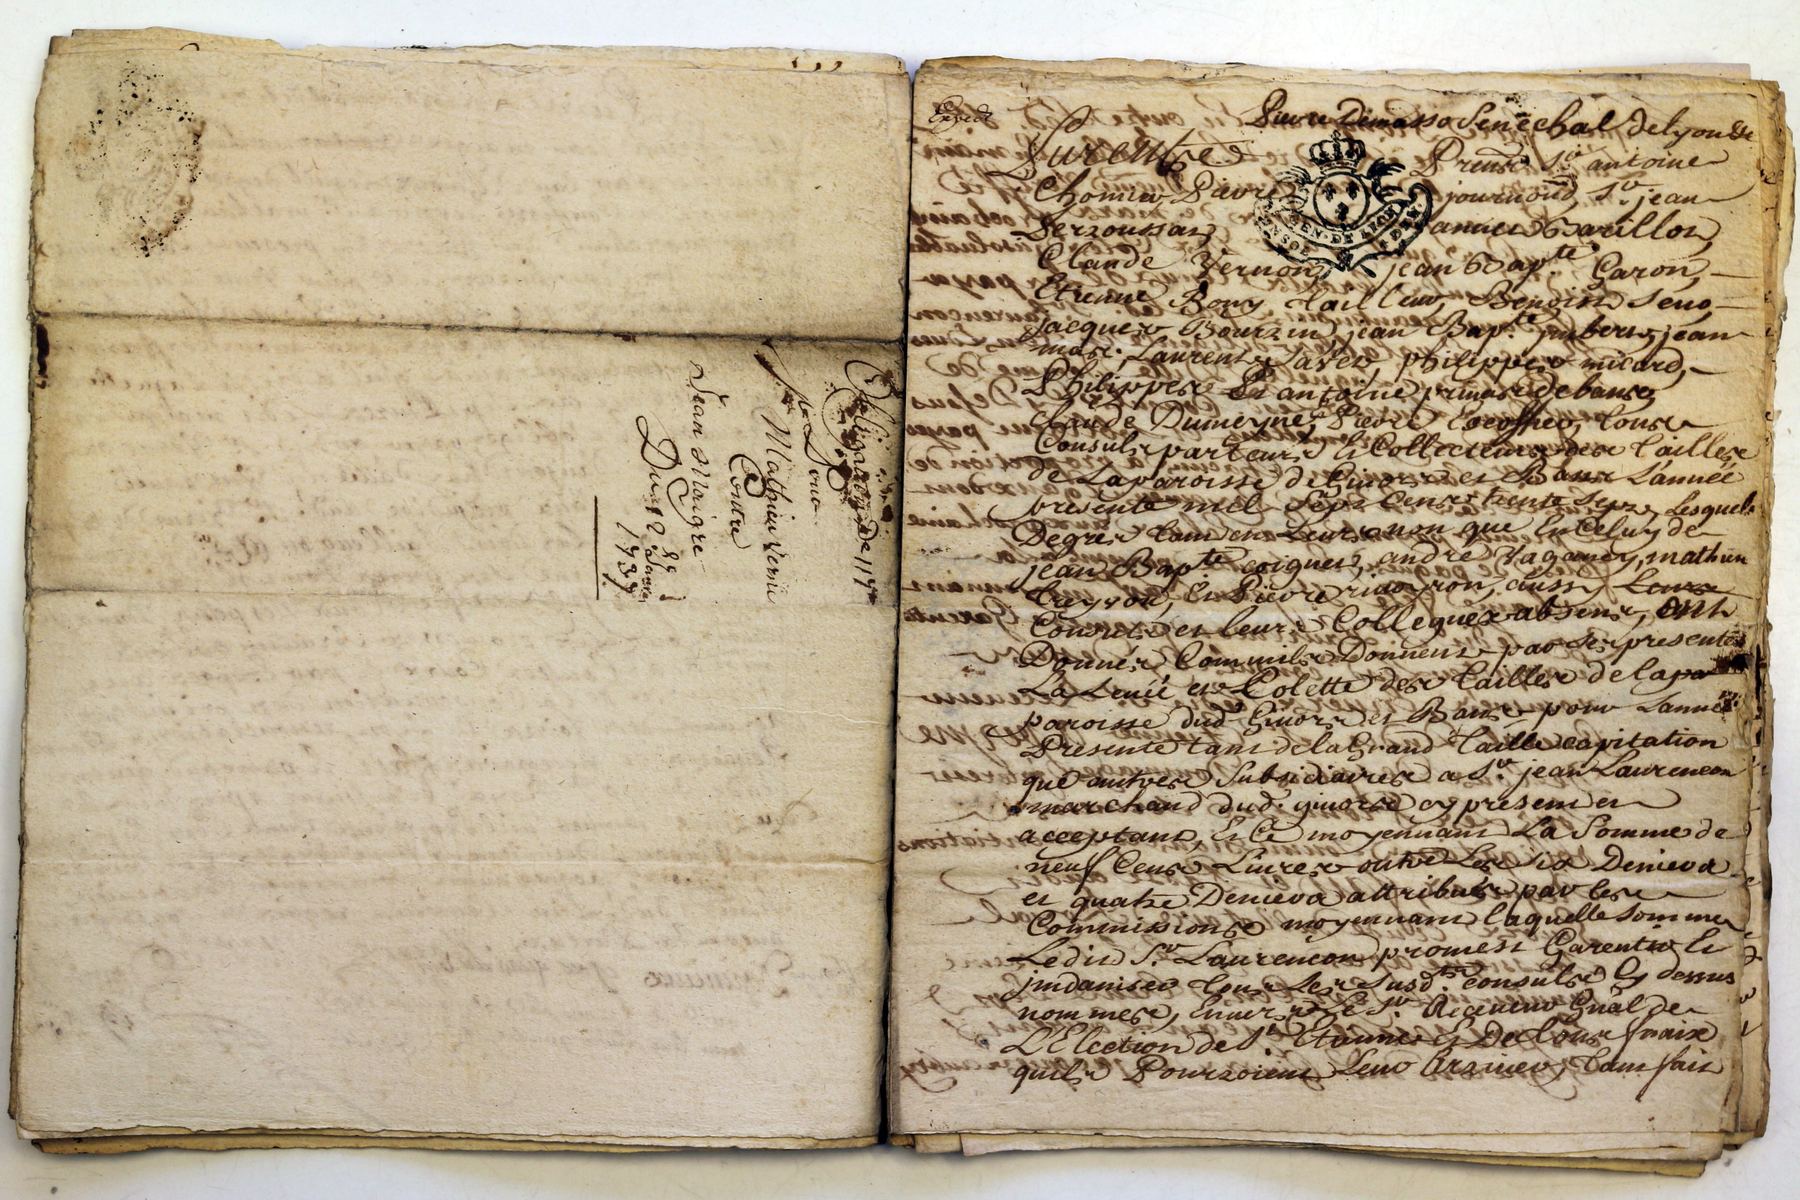 Obligation de 117#
Pour
Sr Mathieu Verne
Contre
Jean Maigre
Du 12e Janvier
1737
Expedié
Pierre Dumas Senechal de Lyon &c
Pardevant Presents Sr antoine
Chomer Pierre journoud, Sr jean
GEN. DE LYON
Barillon,
Claude Vernon, jean Bapte Garon,
Etienne Bony tailleur, Benoist
Jacques Bourzin, jean Bapte jmbert, jean
mare, Laurent Javer, philippes micard,
Philippes Et antoine primas de bans,
Claude Dumeyne, Pierre tous
Consuls parteurs Et Collecteurs des tailles
de La paroisse de Givors et Bans L'année
presente mil Sept Cens trente Sept, Lesquels
Degrés tam en Leurs nom que En Celuy de
jean Bapte coignet, andré Vaganey, mathieu
Et Pierre aussy Leurs
Consuls et leurs Collegues absens, ont
Donnés Comm'ils Donnent par Ses presentes
La Levée et Colette des tailles de la pa
paroisse dud. Givors et Bans pour L'année
Presente tant de la Grand taille capitation
que autres Subsidiaires a Sr. jean Laurencon
marchand dud. givors cy present et
acceptant, Et Ce moyennant La Somme de
neuf Cens Livres outre Les Six Deniers
et quatre Deniers attribués par les
Commissions moyennant laquelle Somme
Ledit Sr. Laurencon promest Garentir Et
jndaniser tous Les Susdts. consuls Cy dessus
nommes, Envers Le Sr. Receveur Gnâl de
L'Election de St Etienne Et De tous fraix
quils Pourroient Leur tant fait